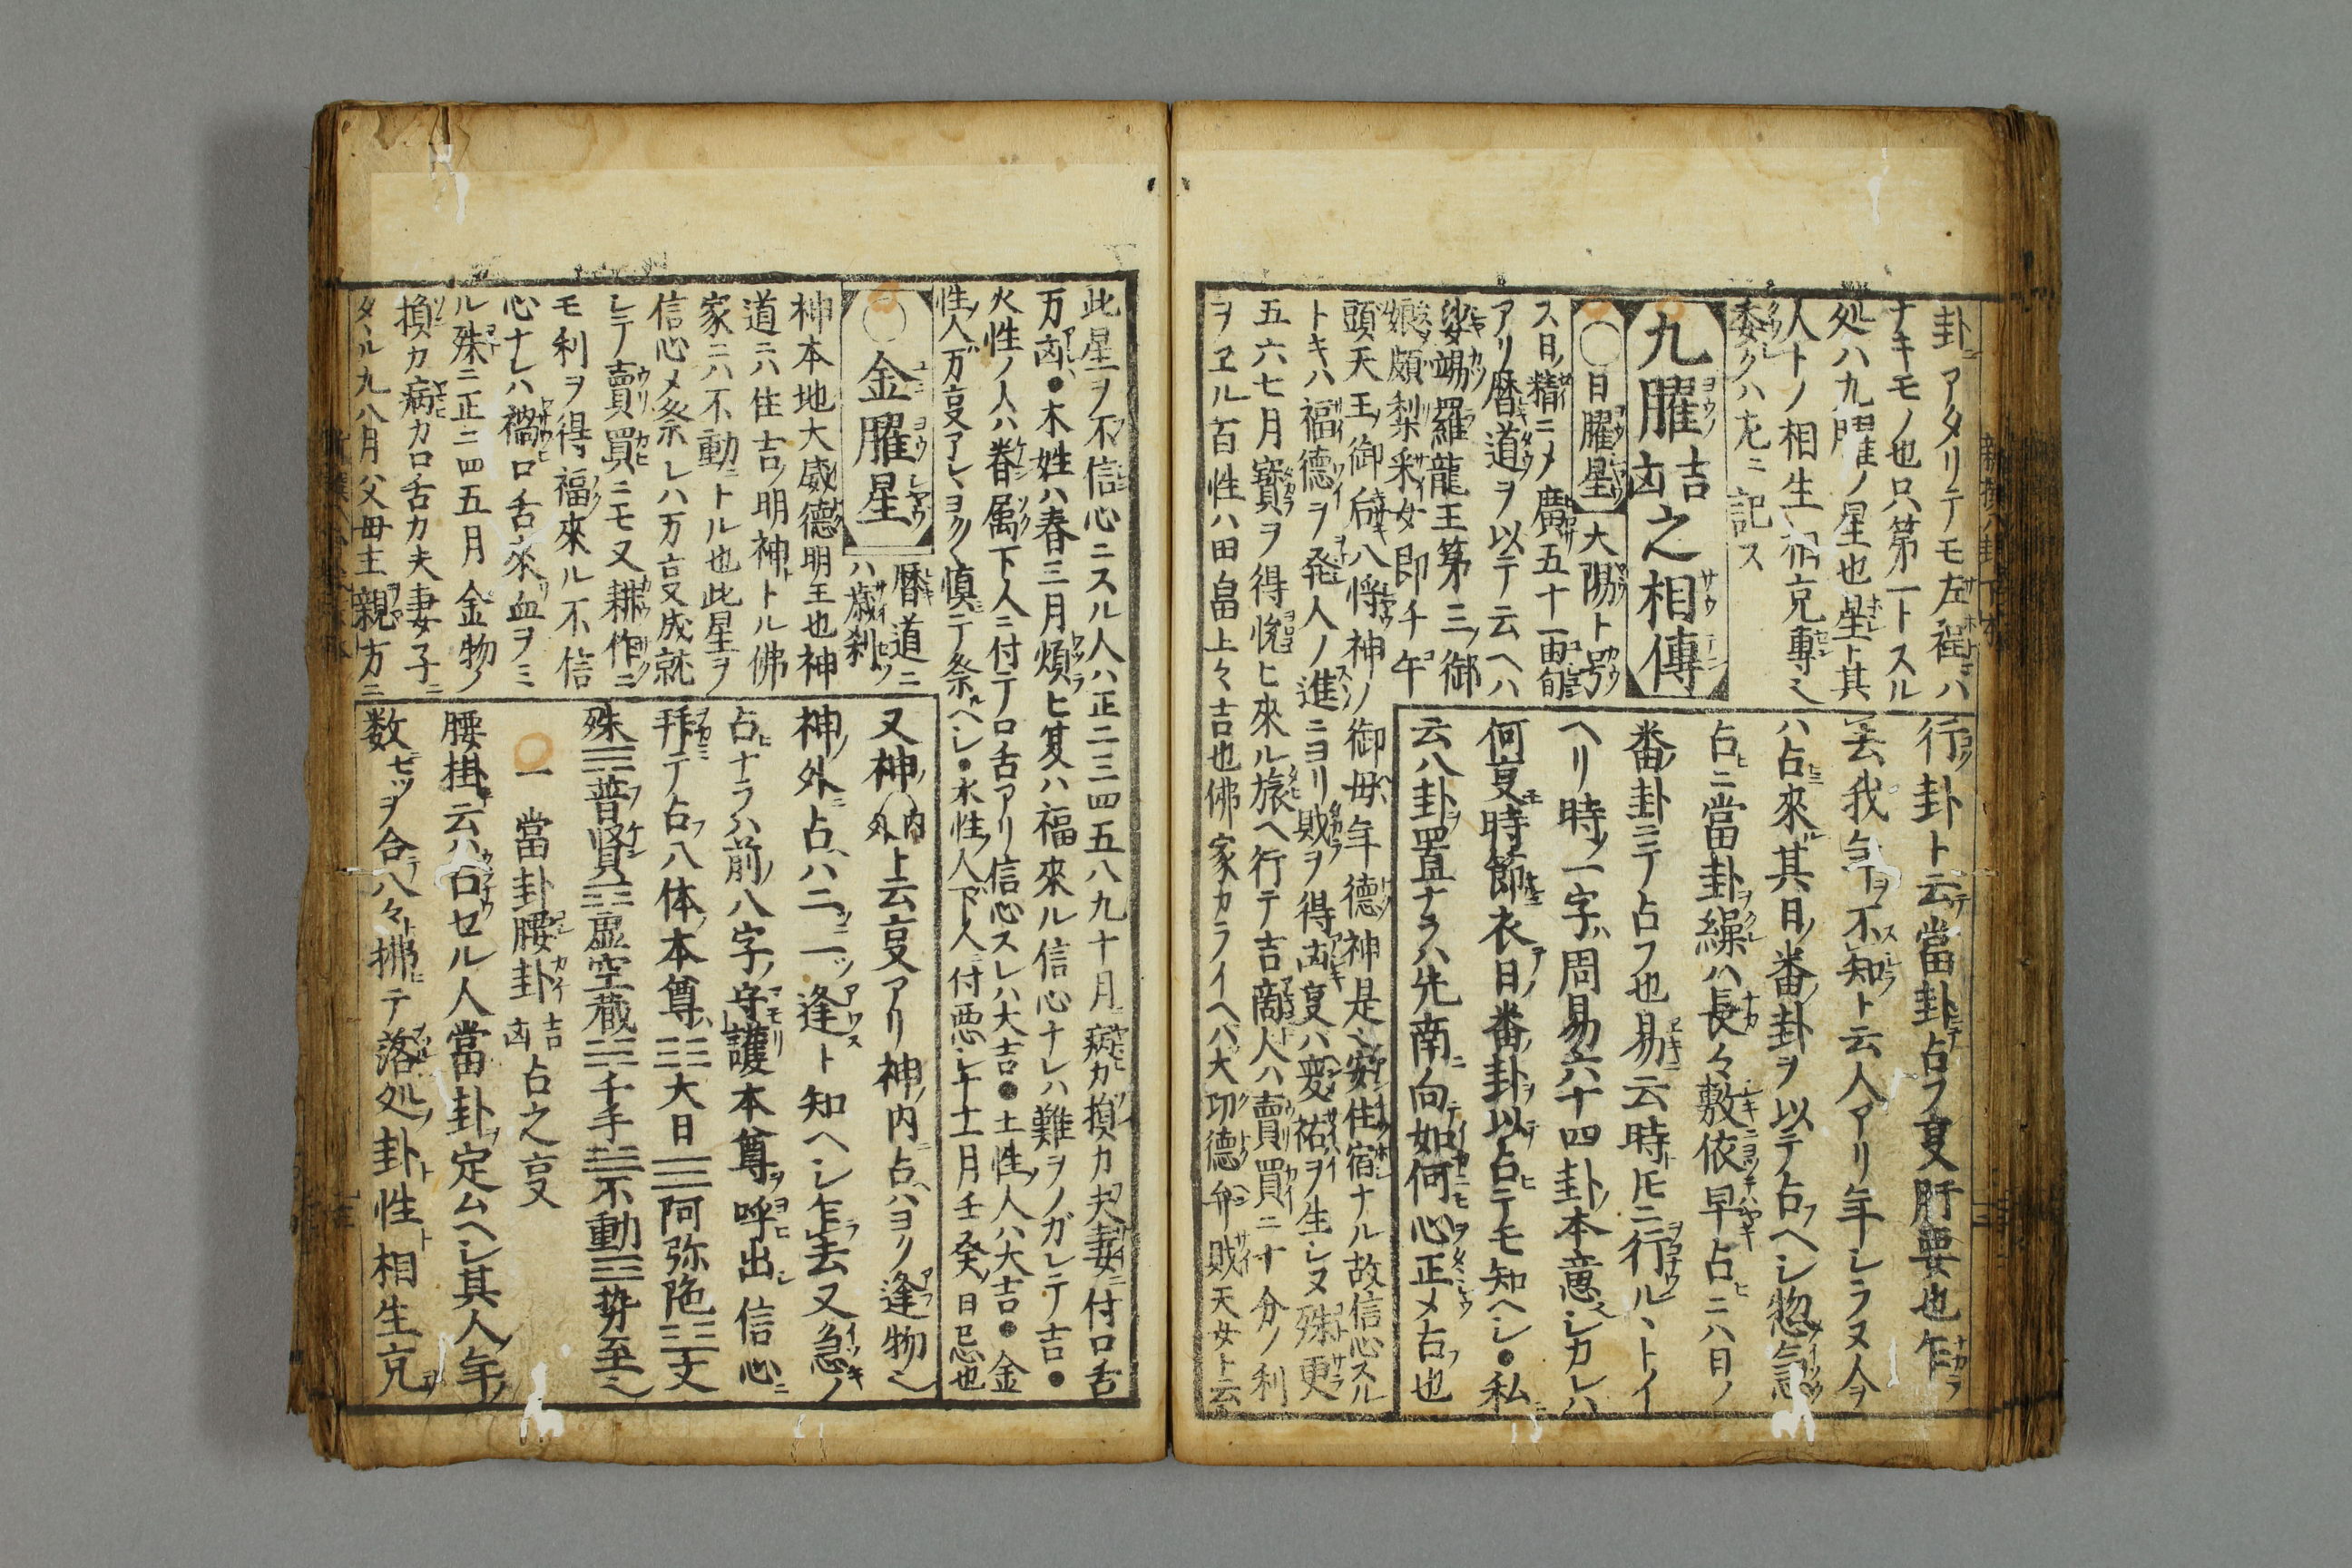 卦ニアタリテモ左程ニハ
ナキモノ也只第一トスル
処ハ九曜ノ星也星ト其
人トノ相生相克専ミ
委クハ左ニ記ス
九曜吉凶之相傳
〇日曜星
大陽ト号
ス日ノ精ニメ廣五十一由旬
アリ暦道ヲ以テ云ヘハ
沙竭羅龍王第三ノ御
娘頗梨采女即チ午
頭天王ノ御后八將神ノ御母年德神是ミ安住宿ナル故信心スル
トキハ福德ヲ発人ノ進ニヨリ財ヲ得凶叓ハ変祐ヲ生シヌ殊更
五六七月寳ヲ得悦ヒ來ル旅ヘ行テ吉敵人ハ賣買ニ十分ノ利
ヲヱル百性ハ田畠上々吉也佛家カライヘハ大功德弁財天女ト云
行卦ト云當卦占フ叓肝要也乍
去我年ヲ不知ト云人アリ年シラヌ今
ハ占來ル其日ノ番卦ヲ以テ占ヘシ惣
占ニ當卦繰ハ長々敷依早占ニハ日ノ
番卦ニテ占フ也易云時ニ行ルヽトイ
ヘリ時ノ一字ハ周易六十四卦ノ本意シカレハ
何叓モ時節衣日ノ番卦以占テモ知ヘシ●私
云八卦置ナラハ先南ニ向如何ニモ心正メ占也
此星ヲ不信心ニスル人ハ正二三四五八九十月ニ病カ損カ夫妻ニ付口舌
万凶●木姓ハ春三月煩ヒ夏ハ福來ル信心ナレハ難ヲノガレテ吉●
火性ノ人ハ眷属下人ニ付テ口舌アリ信心スレハ大吉●土性ノ人ハ大吉●金
性ノ人ハ万叓アシヽヨク〱慎ニテ祭ヘシ●水性ノ人下人ニ付悪シ午十二月壬癸日忌也
〇金曜星
暦道ニ
ハ歳刹
神本地大威德明王也神
道ニハ住吉ノ明神トル佛
家ニハ不動トル也此星ヲ
信心メ祭レハ万叓成就
レテ賣買ニモ又耕作ニ
モ利ヲ得福來ル不信
心ナレハ禍口舌來血ヲミ
ル殊ニ正二四五月金物ノ
損カ病カ口舌カ夫妻子ニ
タヽル九八月父母主親方ニ
又神ノ内外ト云叓アリ神ノ内ニ占ハヨリ逢物ミ
神ノ外ニ占ハ二一ツ逢ト知ヘシ乍去又急ノ
占ナラハ前ノ八字ノ守護本尊ヲ呼出シ信心ニ
拜テ占フ八体ノ本尊☷大日☰阿弥陀☳文
殊☴普賢☵虚空藏☶千手☱不動☲勢至ミ
一 當卦腰卦吉凶占之叓
腰掛云ハ占セル人當卦ヲ定ムヘシ其人年ノ
数ニ七ツヲ合八々ト拂テ落処ノ卦ト性ト相生克